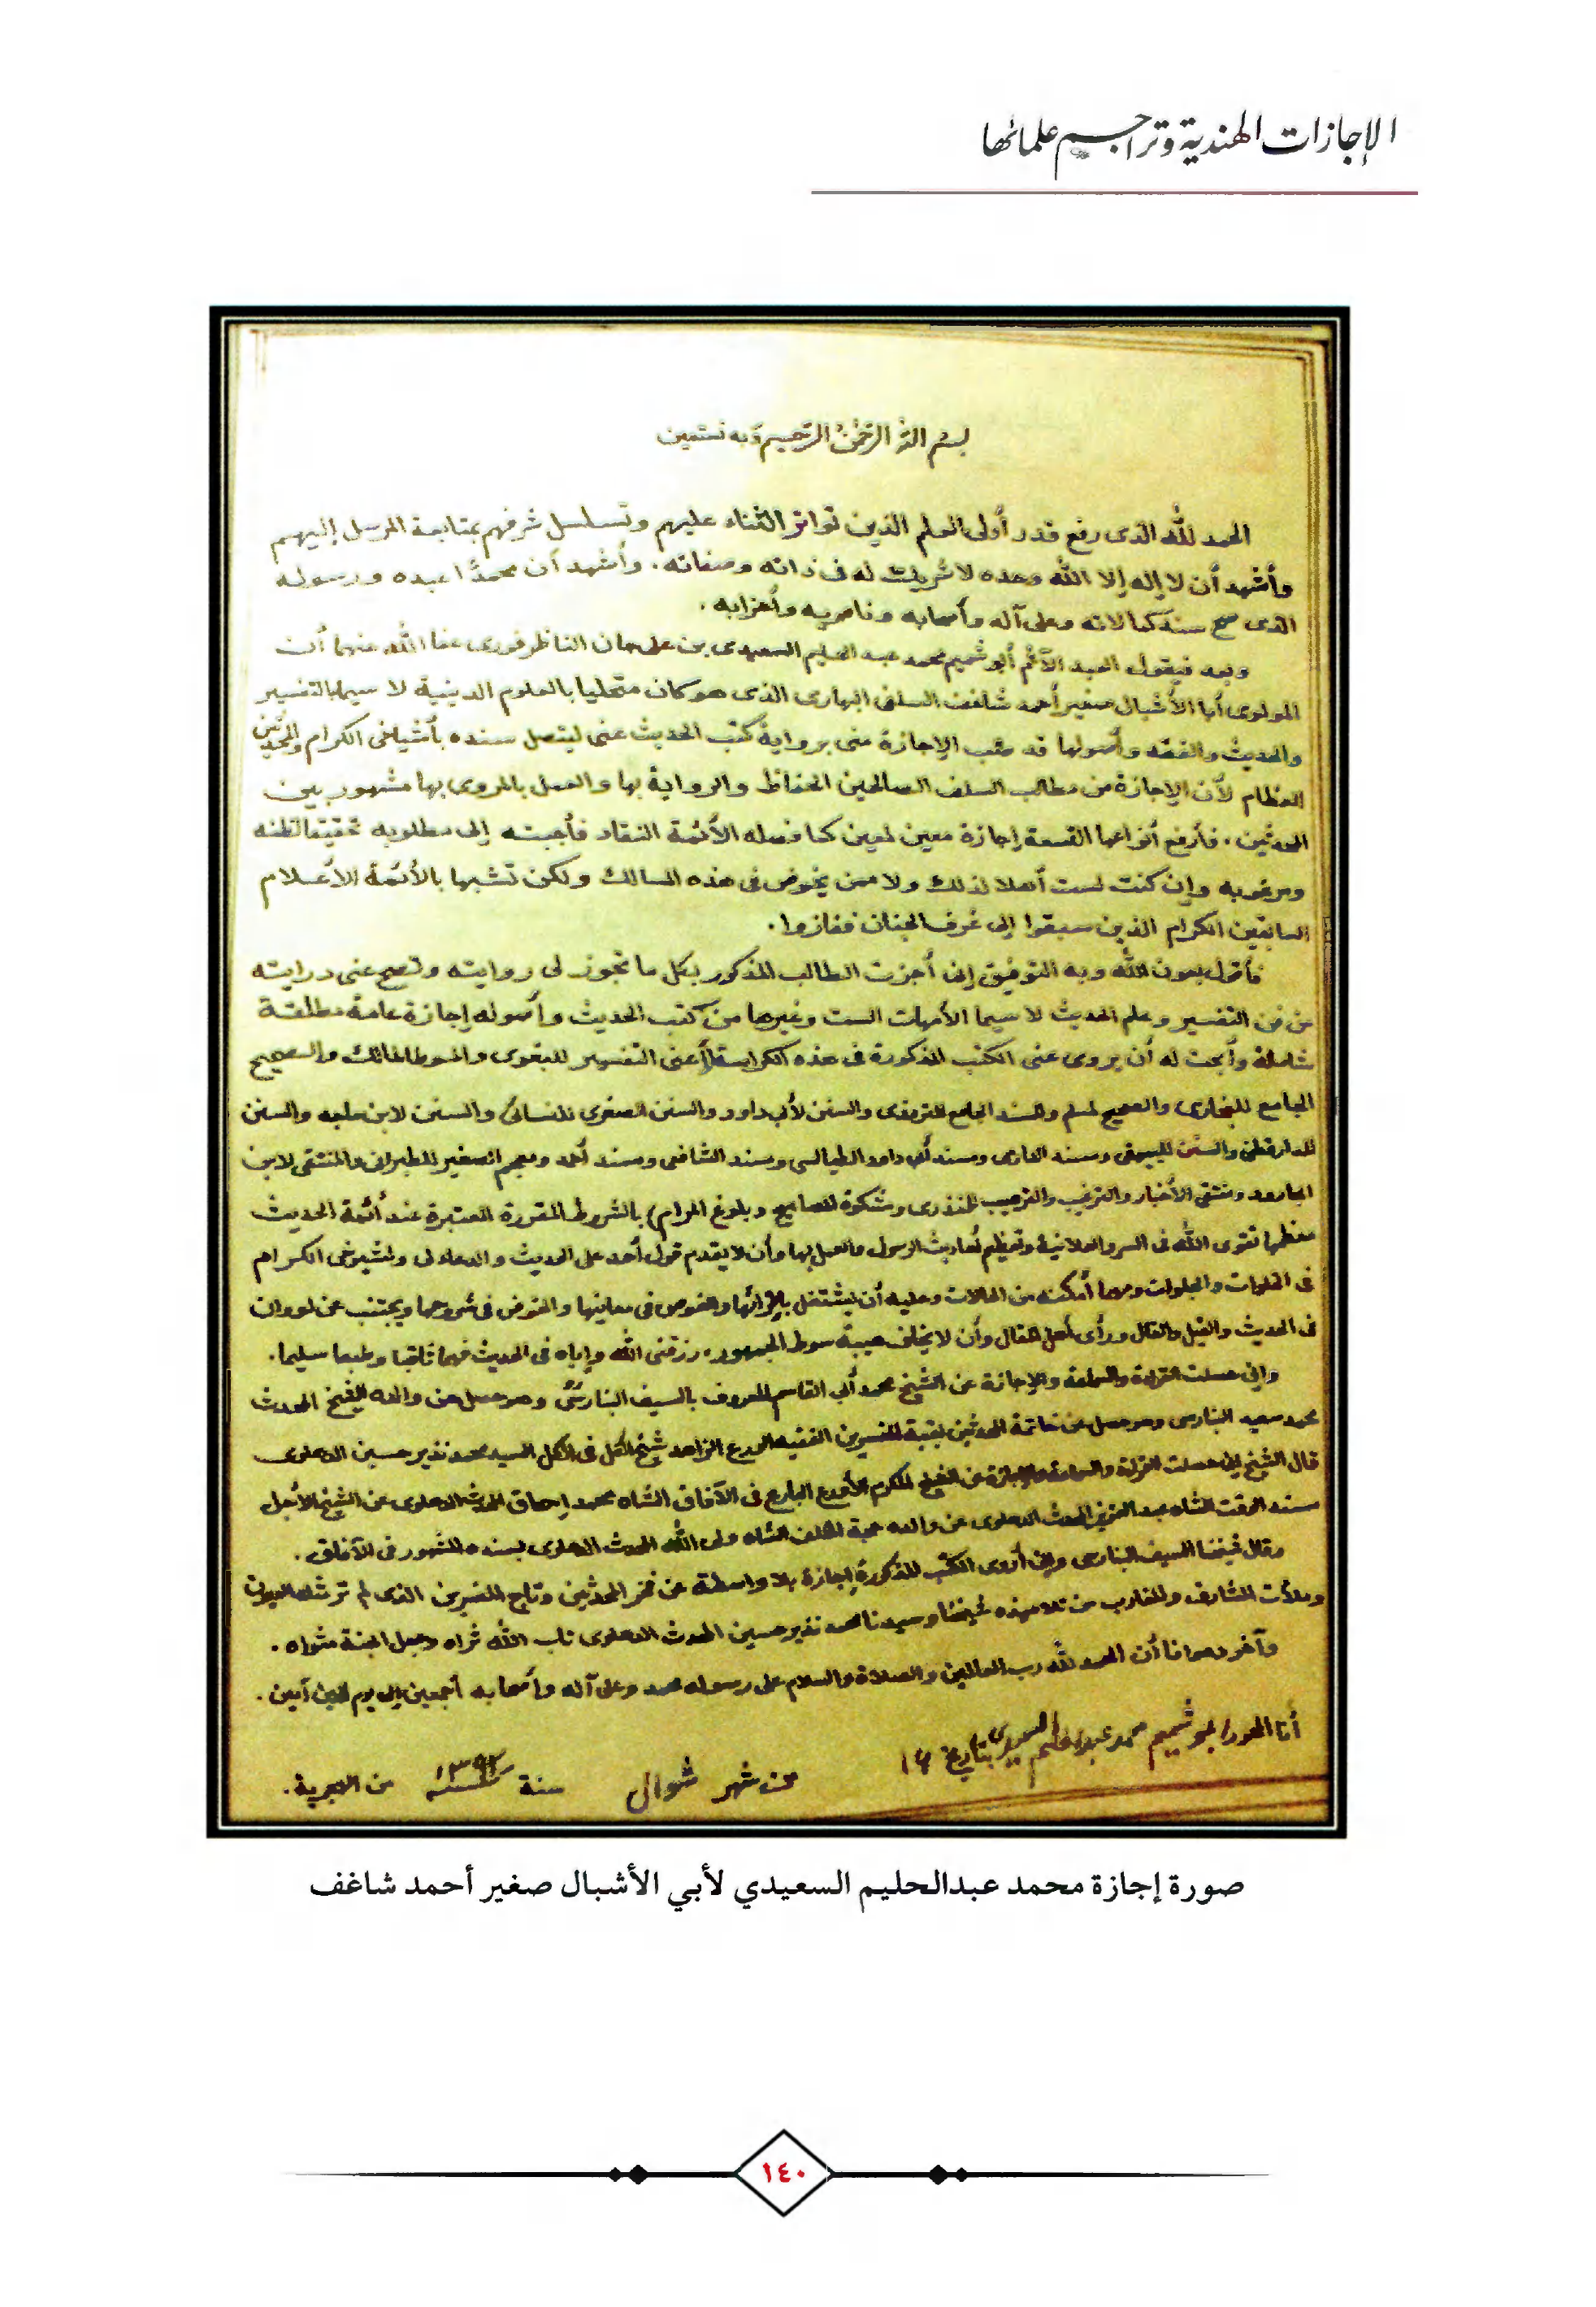 الإجازات الهندية وتراجم علمائها
بسم الله الرحمن الرحيم وبه نستعين
الحمد لله الذي رفع قدر أولى العلم الذين تواتر الثناء عليهم وتسلسل شرفهم بمتابعة المرسل إليهم
وأشهد أن لا إله إلا الله وحده لا شريك له فى ذاته وصفاته. وأشهد أن محمدًا عبده ورسوله
الذى صح سند كمالاته وعلى آله وأصحابه وناصريه وأحزابه.
وبعد فيقول العبد الآثم أبو شميم محمد عبد الحليم السعيدى بن على جان الناظرفورى عفا الله عنهما أن
المولوى أبا الأشبال صغير أحمد شاغف السلفى البهارى الذى هو كان متحليا بالعلوم الدينية لا سيما بالتفسير
والحديث والفقه وأصولها قد طلب الإجازة منى برواية كتب الحديث عنى ليتصل سنده بأشياخى الكرام والمحدثين
العظام لأن الإجازة من مطالب السلف الصالحين الحفاظ والرواية بها والعمل بالمروى بها مشهور بين
المحدثين. فأرفع أنواعها التسعة إجازة معين لمعين كما فصله الأئمة النقاد فأجبته إلى مطلوبه تحقيقا لظنه
ومرغوبه وإن كنت لست أهلا لذلك ولا ممن يخوض فى هذه المسالك ولكن تشبها بالأئمة الأعلام
السابقين الكرام الذين سبقوا إلى غرف الجنان ففازوا.
فأقول بعون الله وبه التوفيق إنى أجزت الطالب المذكور بكل ما تجوز لى روايته وتصح عنى درايته
من فن التفسير وعلم الحديث لا سيما الأمهات الست وغيرها من كتب الحديث وأصوله إجازة عامة مطلقة
شاملة وأبحت له أن يروى عنى الكتب المذكورة فى هذه الكراسة (أعنى التفسير للبغوى والموطا لمالك والصحيح
الجامع للبخارى والصحيح لمسلم والمسند الجامع للترمذى والسنن لأبى داود والسنن الصغرى للنسائى والسنن لابن ماجه والسنن
للدارقطنى والسنن للبيهقى ومسند الدارمى ومسند أبى داود الطيالسى ومسند الشافعى ومسند أحمد ومعجم الصغير للطبرانى والمنتقى لابن
الجارود ومنتقى الأخبار والترغيب والترهيب للمنذرى ومشكوة المصابيح وبلوغ المرام) بالشروط المقررة المعتبرة عند أئمة الحديث
معظمها تقوى الله فى السر والعلانية وتعظيم أحاديث الرسول والعمل بها وأن لا يقدم قول أحد على الحديث والدعاء لى ولشيوخى الكرام
فى الخلوات والجلوات ومهما أمكنه من الحالات وعليه أن يشتغل بإقرائها والغوص فى معانيها والخوض فى شروحها ويجتنب عن
فى الحديث والقيل والقال ورأى أهل المقال وأن لا يخاف هيبة سوط الجمهور. رزقنى الله وإياه فى الحديث فهما ثاقبا وطبعا سليما.
وإنى حصلت القراءة والسماعة والإجازة عن الشيخ محمد أبى القاسم المعروف بالسيف البنارسى وهو حصل عن والده الشيخ المحدث
محمد سعيد البنارسى وهو حصل عن خاتمة المحدثين بقية المفسرين الفقيه الورع الزاهد شيخ الكل فى الكل السيد محمد نذير حسين الدهلوى
قال الشيخ إنى حصلت القراءة والسماعة والإجازة عن الشيخ المكرم الأورع البارع فى الآفاق الشاه محمد إسحاق المحدث الدهلوى عن الشيخ الأجل
مسند الوقت الشاه عبد العزيز المحدث الدهلوى عن والده حجة الخلف الشاه ولى الله المحدث الدهلوى بسنده المشهور فى الآفاق.
وقال شيخنا السيف البنارسى وإنى أروى الكتب المذكورة إجازة بلا واسطة عن فخر المحدثين وتاج المفسرين الذى لم تر مثله العيون
وملأت المشارق والمغارب من تلاميذه شيخنا وسيدنا محمد نذير حسين المحدث الدهلوى طاب الله ثراه وجعل الجنة مثواه.
وآخر دعوانا أن الحمد لله رب العالمين والصلاة والسلام على رسوله محمد وعلى آله وأصحابه أجمعين إلى يوم الدين آمين.
أنا العبد أبو شميم محمد عبد الحليم السعيدى بتاريخ ١٤
من شهر شوال سنة ١٣٩٣ من الهجرية.
صورة إجازة محمد عبدالحليم السعيدي لأبي الأشبال صغير أحمد شاغف
١٤٠